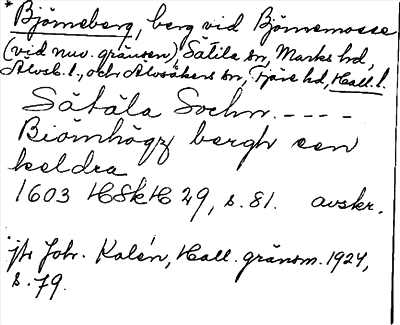 *Björneberg, berg vid Björnemosse
(vid nuv. gränsen) Sätila sn, Marks hd,
Älvsb. l., och Älvsåkers sn, Fjäre hd, Hall. l.
Sätåla Sochn. ----
Biörnhögz bergh een
keldra
1603 HSkH 29, s. 81. avskr.
jfr Joh. Kalén, Hall. gränsm. 1924,
s. 79.